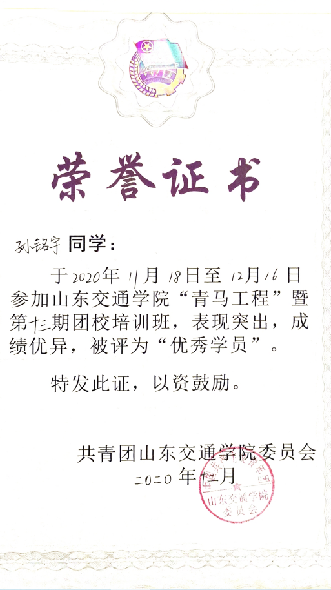 荣誉证书
孙铭宇同学：
于2020年11月18日至12月16日
参加山东交通学院“青马工程”暨
第十三期团校培训班，表现突出，成
绩优异，被评为“优秀学员”。
特发此证，以资鼓励。
共青团山东交通学院委员会
2020年12月
山东交通学院
委员会